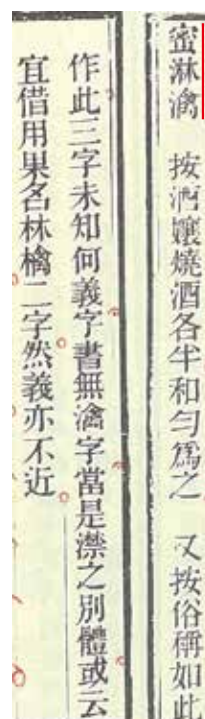 蜜淋 按酒孃燒酒各半和勻爲之 又按俗稱如此
作此三字未知何義字書無字當是澿之別體或云
宜借用果名林檎二字然義亦不近